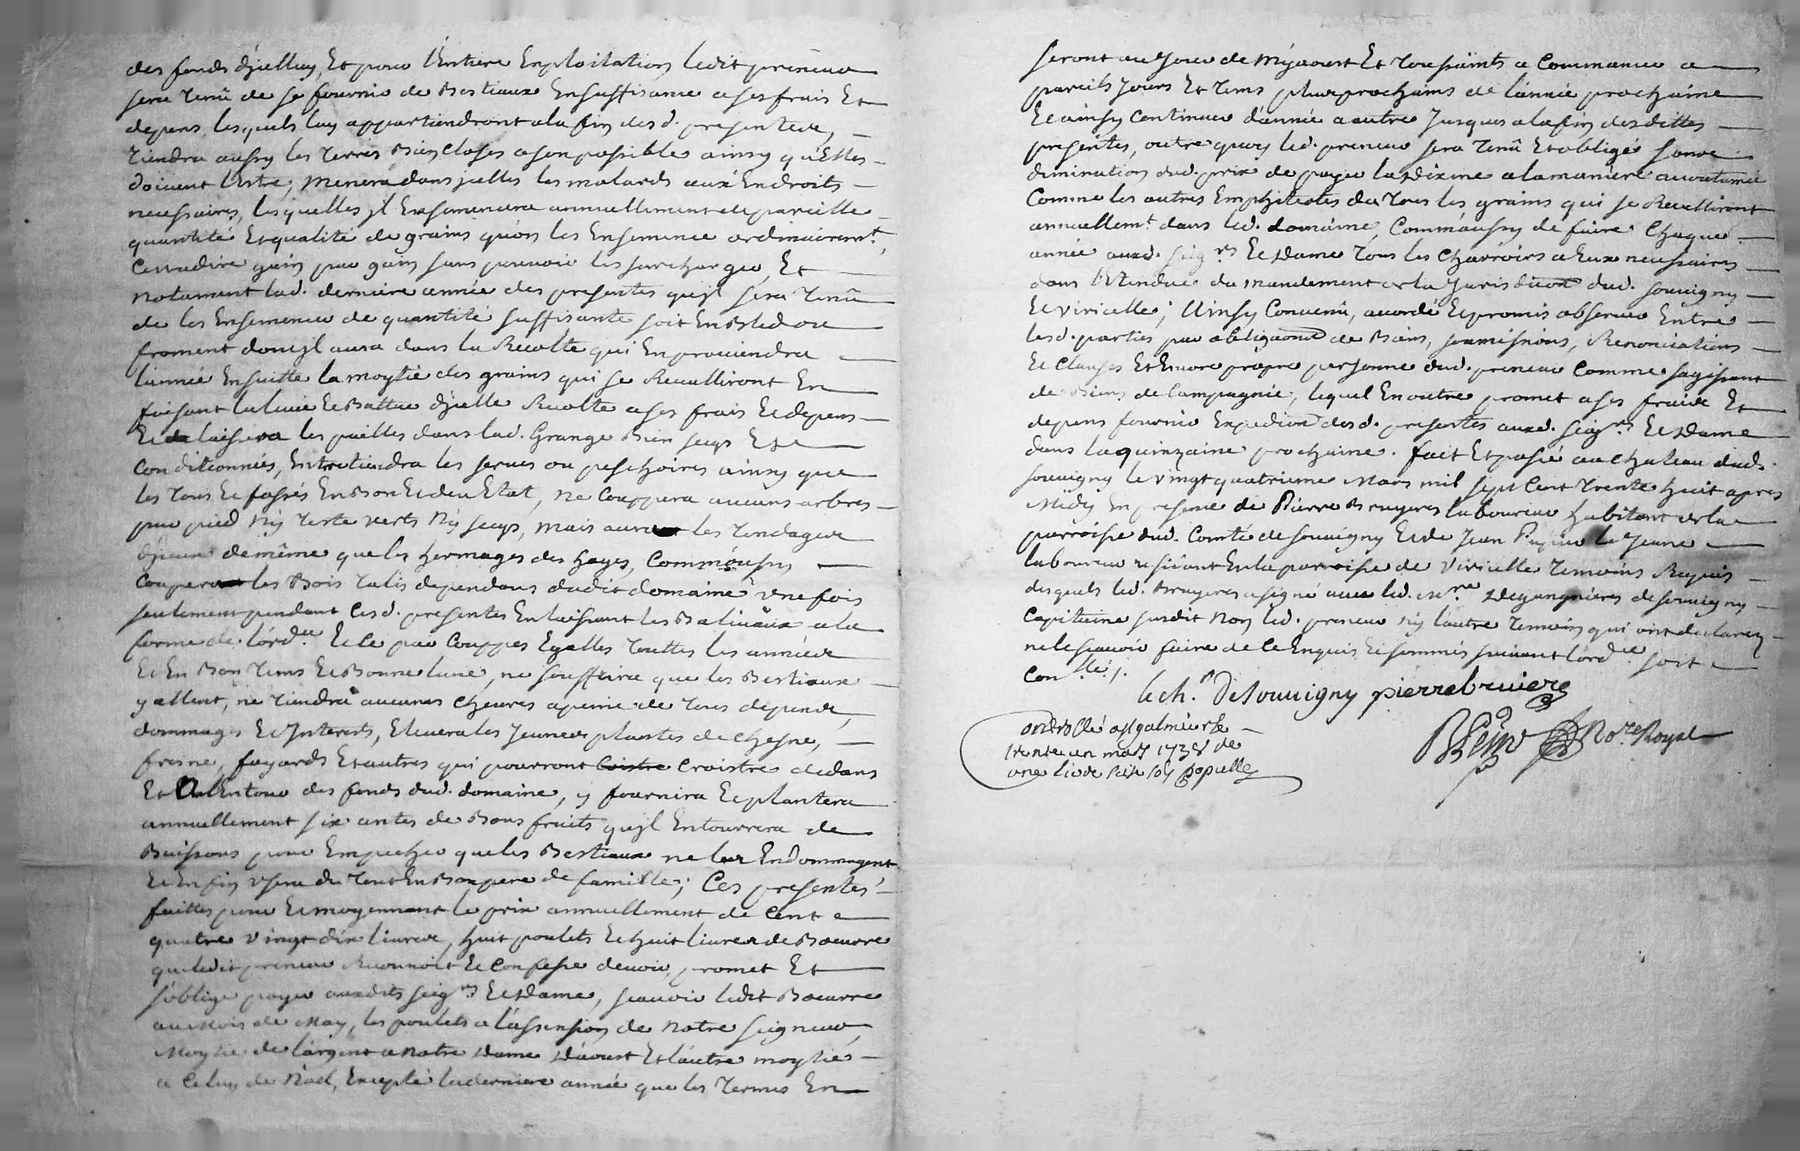 des fonds d'jcelluy, Et pour l'Entiere Exploitation ledit preneur
sera Tenû de se fournir de Bestiaux En suffisance a ses frais Et
depens, lesquels luy appartiendront a la fin des d. presentes,
Tiendra aussy les Terres Bien Closes a son possible ainsy qu'Elles
doivent l'Estre, Menera dans jcelles les malards aux Endroits
necessaires, lesquelles jl Ensemencera annuellement de pareille
quantité Et qualité de grains qu'on les Ensemence ordinairemt.,
C'estadire gain pour gain sans pouvoir les surcharger, Et
notament lad. derniere année des presentes qu'jl sera Tenû
de les Ensemencer de quantité suffisante soit En Bled ou
froment dont jl aura dans la Recolte qui En proviendra
l'année Ensuitte la moytié des grains qui se Recuelliront En
faisant la levée Et Battre d'jcelle Recolte a ses frais Et depens
Et laissera les pailles dans lad. Grange Bien secqs Et
Conditionnés, Entretiendra les serves ou peschoires ainsy que
les Fossés En Bon Et deu Etat, ne Couppera aucuns arbres
par pied Ny Teste verts Ny secqs, mais aura les Tondages
d'jceux de même que les hermages des hayes, Comm'aussy
Coupera les Bois Talis dependans dudit domaine Une fois
seulement pendant les d. presentes En laissant les Baliuaux a la
forme de l'ord.ce Et Ce par Couppes Egalles Touttes les années
Et En Bon Tems Et Bonne lune, ne souffrira que les Bestiaux
y allent, ne Tiendra aucunes Chevres a peine de Tous depens,
dommages Et Interests, Elevera les Jeunes plantes de Chesne,
fresne, fayards Et autres qui pourront Croistre dedans
Et a l'Entour des fonds dud. domaine, y fournira Et plantera
annuellement six antes de Bons fruits qu'jl Entourrera de
Buissons pour Empecher que les Bestiaux ne les Endommagent
Et Enfin Usera du Tout En Bon pere de famille; Ces presentes
faittes pour Et moyennant le prix annuellement de Cent
quatre Vingt dix livres, huit poulets Et huit livres de Boeurre
que ledit preneur Reconnoit Et Confesse devoir, promet Et
s'oblige payer auxdits seigrs Et Dame, scavoir ledit Boeurre
au Mois de May, les poulets a l'assension de Notre seigneur,
Moytié de l'argent a Notre Dame D'aoust Et l'autre moytié
a Celuy de Noel, Excepté la derniere année que les Termes En
seront au Jour de Myaoust Et Toussaints a Commancer a
pareils Jours Et Tems plus prochains de l'année prochaine
Et ainsy Continuer d'année a autre Jusques a la fin desdittes
presentes, outre quoy led. preneur sera Tenû Et obligé sans
diminution dud. prix de payer la Dixme a la maniere accoutumée
Comme les autres Emphiteotes de Tous les grains qui se Recuelliront
annuellemt. dans led. domaine, Comm'aussy de faire Chaque
année auxd. seigrs Et Dame Tous les Charroirs a Eux necessaires
dans l'Etendue du mandement et la Jurisdiction dud. souvigny
Et viricelle; Ainsy Convenû, accordé Et promis observer Entre
lesd. parties par obligations de Biens, soumissions, Renonciations
Et Clauses Et Encore propre personne dud. preneur Comme sagissant
de Biens de Campagnie, lequel En outre promet a ses fraix Et
depens fournir Expedition desd. presentes auxd. seigrs Et Dame
dans la quinzaine prochaine. fait Et passé au Chateau dud.
souvigny le vingt quatrieme Mars mil sept Cent Trente huit apres
Midy En presence de Pierre Bruyeres laboureur habitant de la
parroisse dud. Comté de souvigny Et de Jean le Jeune
laboureur residant En la parroisse de Viricelle Temoins Requis
desquels led. Bruyeres a signé avec led. de souvigny
Capitaine susdit Non led. preneur Ny l'autre Temoin qui ont declarez
ne le scavoir faire de Ce Enquis Et sommés suivant l'ord.ce soit
Conllé./.
le ch.r De Souvigny pierre bruiere
Controllé a st galmier le
trente un mars 1738 de
une livre seize sols
No.re Royal